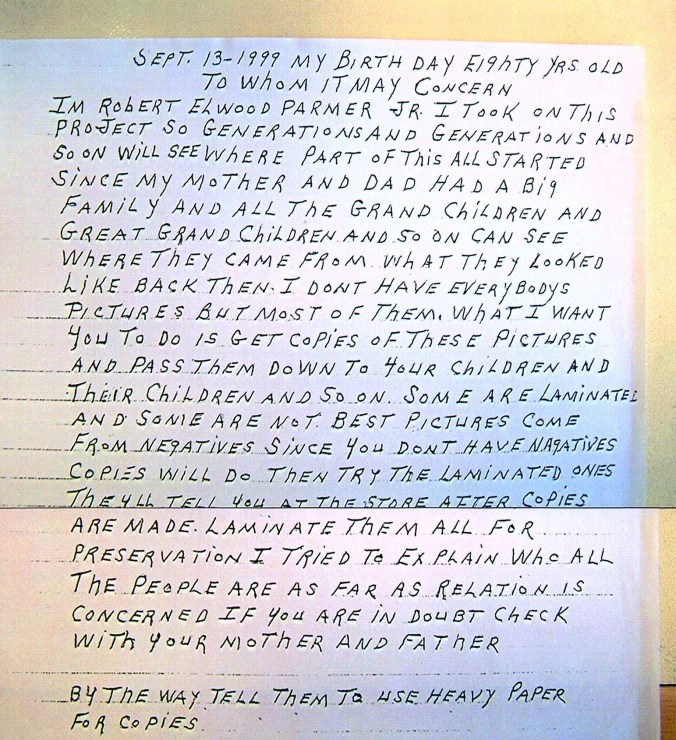 SEPT. 13-1999 MY BIRTH DAY EIGHTY YRS OLD
TO WHOM IT MAY CONCERN
IM ROBERT ELWOOD PARMER JR. I TOOK ON THIS
PROJECT SO GENERATIONS AND GENERATIONS AND
SO ON WILL SEE WHERE PART OF THIS ALL STARTED
SINCE MY MOTHER AND DAD HAD A BIG
FAMILY AND ALL THE GRAND CHILDREN AND
GREAT GRAND CHILDREN AND SO ON CAN SEE
WHERE THEY CAME FROM. WHAT THEY LOOKED
LIKE BACK THEN. I DONT HAVE EVERYBODYS
PICTURES BUT MOST OF THEM. WHAT I WANT
YOU TO DO IS GET COPIES OF THESE PICTURES
AND PASS THEM DOWN TO YOUR CHILDREN AND
THEIR CHILDREN AND SO ON. SOME ARE LAMINATED
AND SOME ARE NOT. BEST PICTURES COME
FROM NEGATIVES SINCE YOU DONT HAVE NAGATIVES
COPIES WILL DO THEN TRY THE LAMINATED ONES
THEYLL TELL YOU AT THE STORE AFTER COPIES
ARE MADE. LAMINATE THEM ALL FOR
PRESERVATION I TRIED TO EXPLAIN WHO ALL
THE PEOPLE ARE AS FAR AS RELATION IS
CONCERNED IF YOU ARE IN DOUBT CHECK
WITH YOUR MOTHER AND FATHER
BY THE WAY TELL THEM TO USE HEAVY PAPER
FOR COPIES